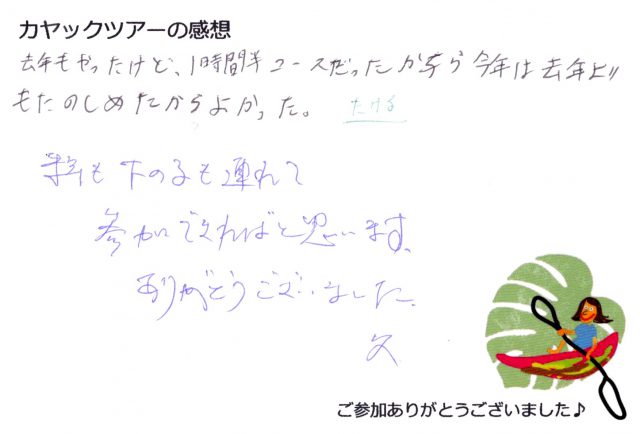 カヤックツアーの感想
去年もやったけど、1時間半コースだったから今年は去年より
もたのしめたからよかった。 たける
来年も下の子も連れて
参加できればと思います。
ありがとうございました。
父
ご参加ありがとうございました♪